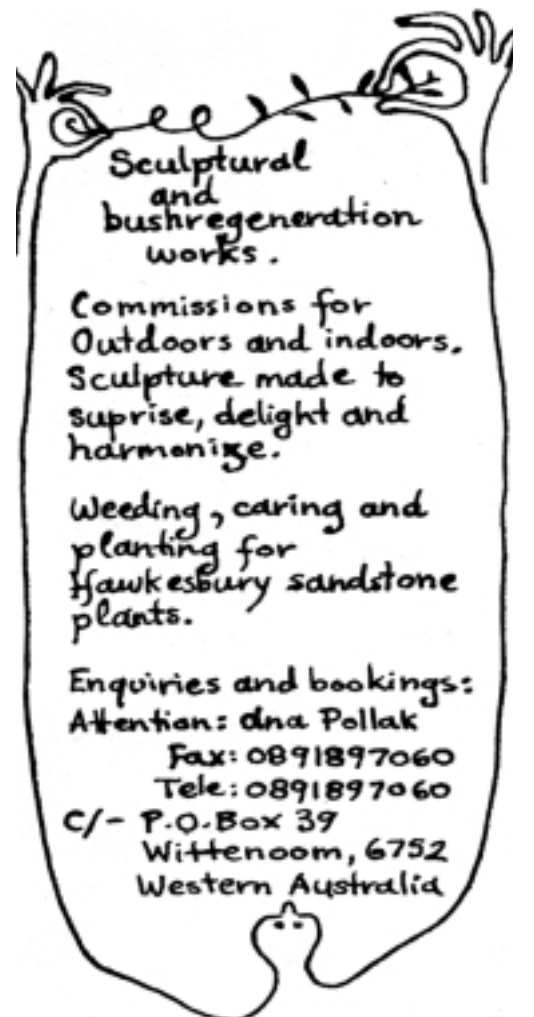 Sculptural
and
bushregeneration
works.
Commissions for
Outdoors and indoors.
Sculpture made to
suprise, delight and
harmonize.
Weeding, caring and
planting for
Hawkesbury sandstone
plants.
Enquiries and bookings:
Attention: dna Pollak
Fax: 0891897060
Tele: 0891897060
C/- P.O. Box 39
Wittenoom, 6752
Western Australia